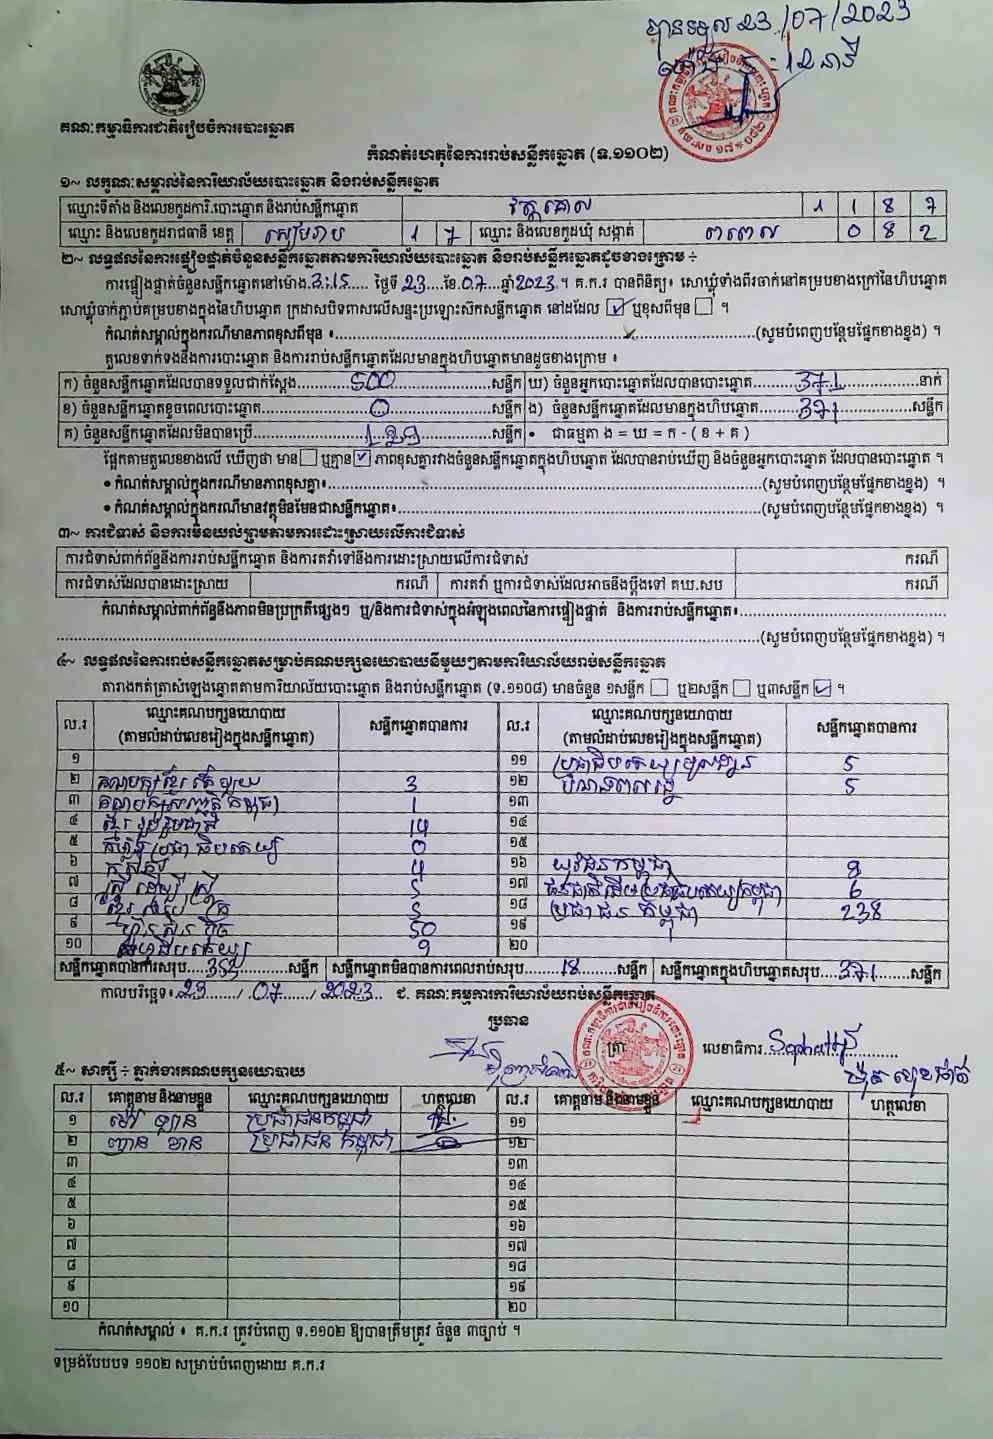 បានទទួល 23/07/2023
គណៈកម្មាធិការជាតិរៀបចំការបោះឆ្នោត
កំណត់ហេតុនៃការរាប់សន្លឹកឆ្នោត (ទ.១១០២)
១~ លក្ខណៈសម្គាល់នៃការិយាល័យបោះឆ្នោត និងរាប់សន្លឹកឆ្នោត
ឈ្មោះទីតាំង និងលេខកូដការិ.បោះឆ្នោត និងរាប់សន្លឹកឆ្នោត 1 1 8 7
ឈ្មោះ និងលេខកូដរាជធានី ខេត្ត សៀមរាប 1 7 ឈ្មោះ និងលេខកូដឃុំ សង្កាត់ 0 8 2
២~ លទ្ធផលនៃការផ្ទៀងផ្ទាត់ចំនួនសន្លឹកឆ្នោតតាមការិយាល័យបោះឆ្នោត និងរាប់សន្លឹកឆ្នោតដូចខាងក្រោម ÷
ការផ្ទៀងផ្ទាត់ចំនួនសន្លឹកឆ្នោតនៅម៉ោង.3:15..... ថ្ងៃទី 23....ខែ.07.....ឆ្នាំ2023.។ គ.ក.រ បានពិនិត្យ៖ សោឃ្លុំទាំងពីរចាក់នៅគម្របខាងក្រៅនៃហិបឆ្នោត
សោឃ្លុំចាក់ភ្ជាប់គម្របខាងក្នុងនៃហិបឆ្នោត ក្រដាសបិទពាសលើសន្ទះប្រឡោះស៊កសន្លឹកឆ្នោត នៅដដែល ☑ ឬខុសពីមុន ☐ ។
កំណត់សម្គាល់ក្នុងករណីមានភាពខុសពីមុន ៖..........(សូមបំពេញបន្ថែមផ្នែកខាងខ្នង) ។
តួលេខទាក់ទងនឹងការបោះឆ្នោត និងការរាប់សន្លឹកឆ្នោតដែលមានក្នុងហិបឆ្នោតមានដូចខាងក្រោម ៖
ក) ចំនួនសន្លឹកឆ្នោតដែលបានទទួលជាក់ស្តែង..........500..........សន្លឹក ឃ) ចំនួនអ្នកបោះឆ្នោតដែលបានបោះឆ្នោត..........371..........នាក់
ខ) ចំនួនសន្លឹកឆ្នោតខូចពេលបោះឆ្នោត..........0..........សន្លឹក ង) ចំនួនសន្លឹកឆ្នោតដែលមានក្នុងហិបឆ្នោត..........371..........សន្លឹក
គ) ចំនួនសន្លឹកឆ្នោតដែលមិនបានប្រើ..........129..........សន្លឹក • ជាធម្មតា ង = ឃ = ក - ( ខ + គ )
ផ្អែកតាមតួលេខខាងលើ ឃើញថា មាន ☐ ឬគ្មាន ☑ ភាពខុសគ្នារវាងចំនួនសន្លឹកឆ្នោតក្នុងហិបឆ្នោត ដែលបានរាប់ឃើញ និងចំនួនអ្នកបោះឆ្នោត ដែលបានបោះឆ្នោត ។
• កំណត់សម្គាល់ក្នុងករណីមានភាពខុសគ្នា៖..........(សូមបំពេញបន្ថែមផ្នែកខាងខ្នង) ។
• កំណត់សម្គាល់ក្នុងករណីមានវត្ថុមិនមែនជាសន្លឹកឆ្នោត៖..........(សូមបំពេញបន្ថែមផ្នែកខាងខ្នង) ។
៣~ ការជំទាស់ និងការមិនយល់ព្រមតាមការដោះស្រាយលើការជំទាស់
ការជំទាស់ពាក់ព័ន្ធនឹងការរាប់សន្លឹកឆ្នោត និងការតវ៉ាទៅនឹងការដោះស្រាយលើការជំទាស់ ករណី
ការជំទាស់ដែលបានដោះស្រាយ ករណី ការតវ៉ា ឬការជំទាស់ដែលអាចនឹងប្តឹងទៅ គឃ.សប ករណី
កំណត់សម្គាល់ពាក់ព័ន្ធនឹងភាពមិនប្រក្រតីផ្សេងៗ ឬ/និងការជំទាស់ក្នុងអំឡុងពេលនៃការផ្ទៀងផ្ទាត់ និងការរាប់សន្លឹកឆ្នោត៖..........
..........(សូមបំពេញបន្ថែមផ្នែកខាងខ្នង) ។
៤~ លទ្ធផលនៃការរាប់សន្លឹកឆ្នោតសម្រាប់គណបក្សនយោបាយនីមួយៗតាមការិយាល័យរាប់សន្លឹកឆ្នោត
តារាងកត់ត្រាសំឡេងឆ្នោតតាមការិយាល័យបោះឆ្នោត និងរាប់សន្លឹកឆ្នោត (ទ.១១០៨) មានចំនួន ១សន្លឹក ☐ ឬ២សន្លឹក ☐ ឬ៣សន្លឹក ☑ ។
ល.រ ឈ្មោះគណបក្សនយោបាយ (តាមលំដាប់លេខរៀងក្នុងសន្លឹកឆ្នោត) សន្លឹកឆ្នោតបានការ ល.រ ឈ្មោះគណបក្សនយោបាយ (តាមលំដាប់លេខរៀងក្នុងសន្លឹកឆ្នោត) សន្លឹកឆ្នោតបានការ
១ ១១ ប្រជាធិបតេយ្យមូលដ្ឋាន 5
២ 3 ១២ 5
៣ 1 ១៣
៤ ខ្មែររួបរួមជាតិ 14 ១៤
៥ កម្លាំងប្រជាធិបតេយ្យ 0 ១៥
៦ កសិករ 4 ១៦ យុវជនកម្ពុជា 9
៧ ស្រ្តីដើម្បីស្រ្តី 5 ១៧ ជនជាតិដើមប្រជាធិបតេយ្យកម្ពុជា 6
៨ 5 ១៨ ប្រជាជនកម្ពុជា 238
៩ ហ្វ៊ុនស៊ិនប៉ិច 50 ១៩
១០ 9 ២០
សន្លឹកឆ្នោតបានការសរុប....353..........សន្លឹក សន្លឹកឆ្នោតមិនបានការពេលរាប់សរុប.......18........សន្លឹក សន្លឹកឆ្នោតក្នុងហិបឆ្នោតសរុប....371.......សន្លឹក
កាលបរិច្ឆេទ៖ 23....../.07......./.2023... ជ. គណៈកម្មការការិយាល័យរាប់សន្លឹកឆ្នោត
ប្រធាន
ត្រា លេខាធិការ
៥~ សាក្សី ÷ ភ្នាក់ងារគណបក្សនយោបាយ
ល.រ គោត្តនាម និងនាមខ្លួន ឈ្មោះគណបក្សនយោបាយ ហត្ថលេខា ល.រ គោត្តនាម និងនាមខ្លួន ឈ្មោះគណបក្សនយោបាយ ហត្ថលេខា
១ ប្រជាជនកម្ពុជា ១១
២ ប្រជាជន កម្ពុជា ១២
៣ ១៣
៤ ១៤
៥ ១៥
៦ ១៦
៧ ១៧
៨ ១៨
៩ ១៩
១០ ២០
កំណត់សម្គាល់ ៖ គ.ក.រ ត្រូវបំពេញ ទ.១១០២ ឱ្យបានត្រឹមត្រូវ ចំនួន ៣ច្បាប់ ។
ទម្រង់បែបបទ ១១០២ សម្រាប់បំពេញដោយ គ.ក.រ